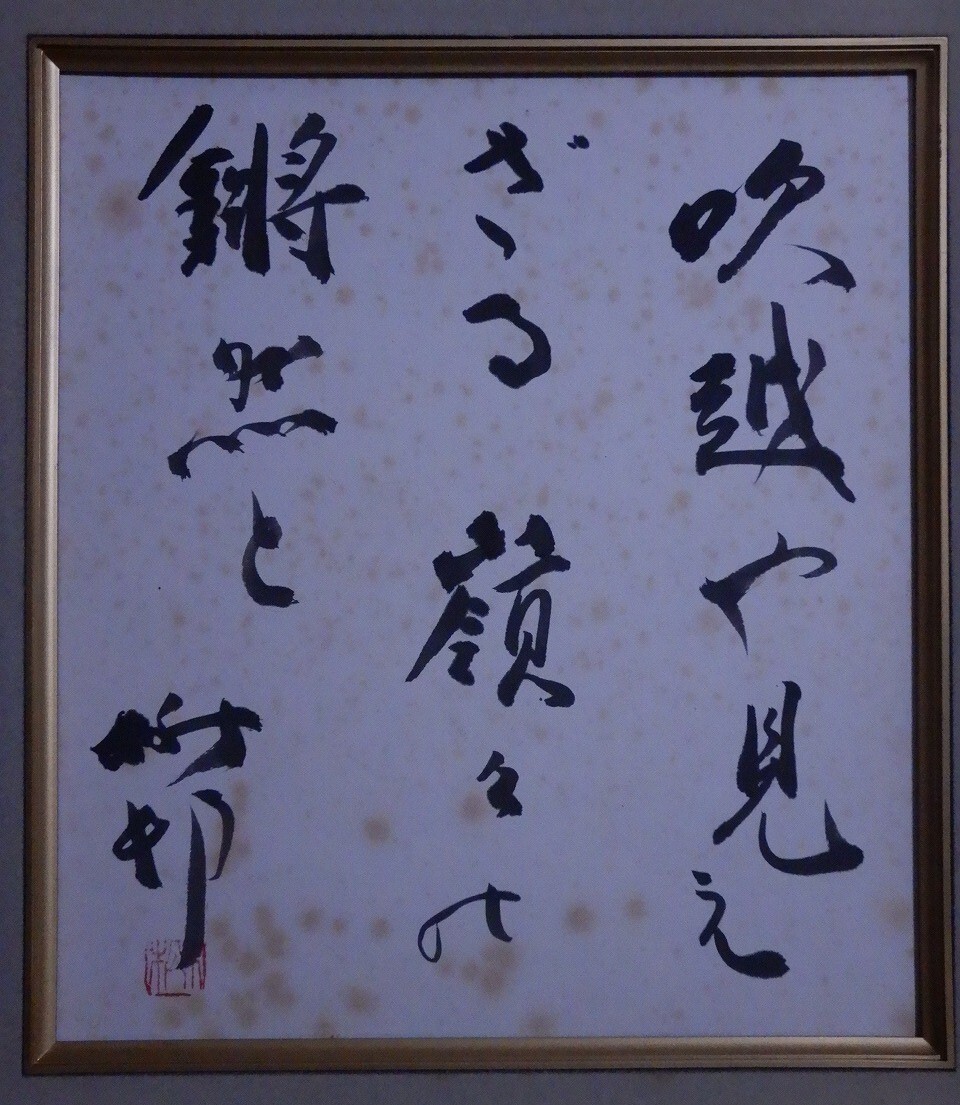 吹越や見え
ざる嶺々の
鏘然と 楸邨